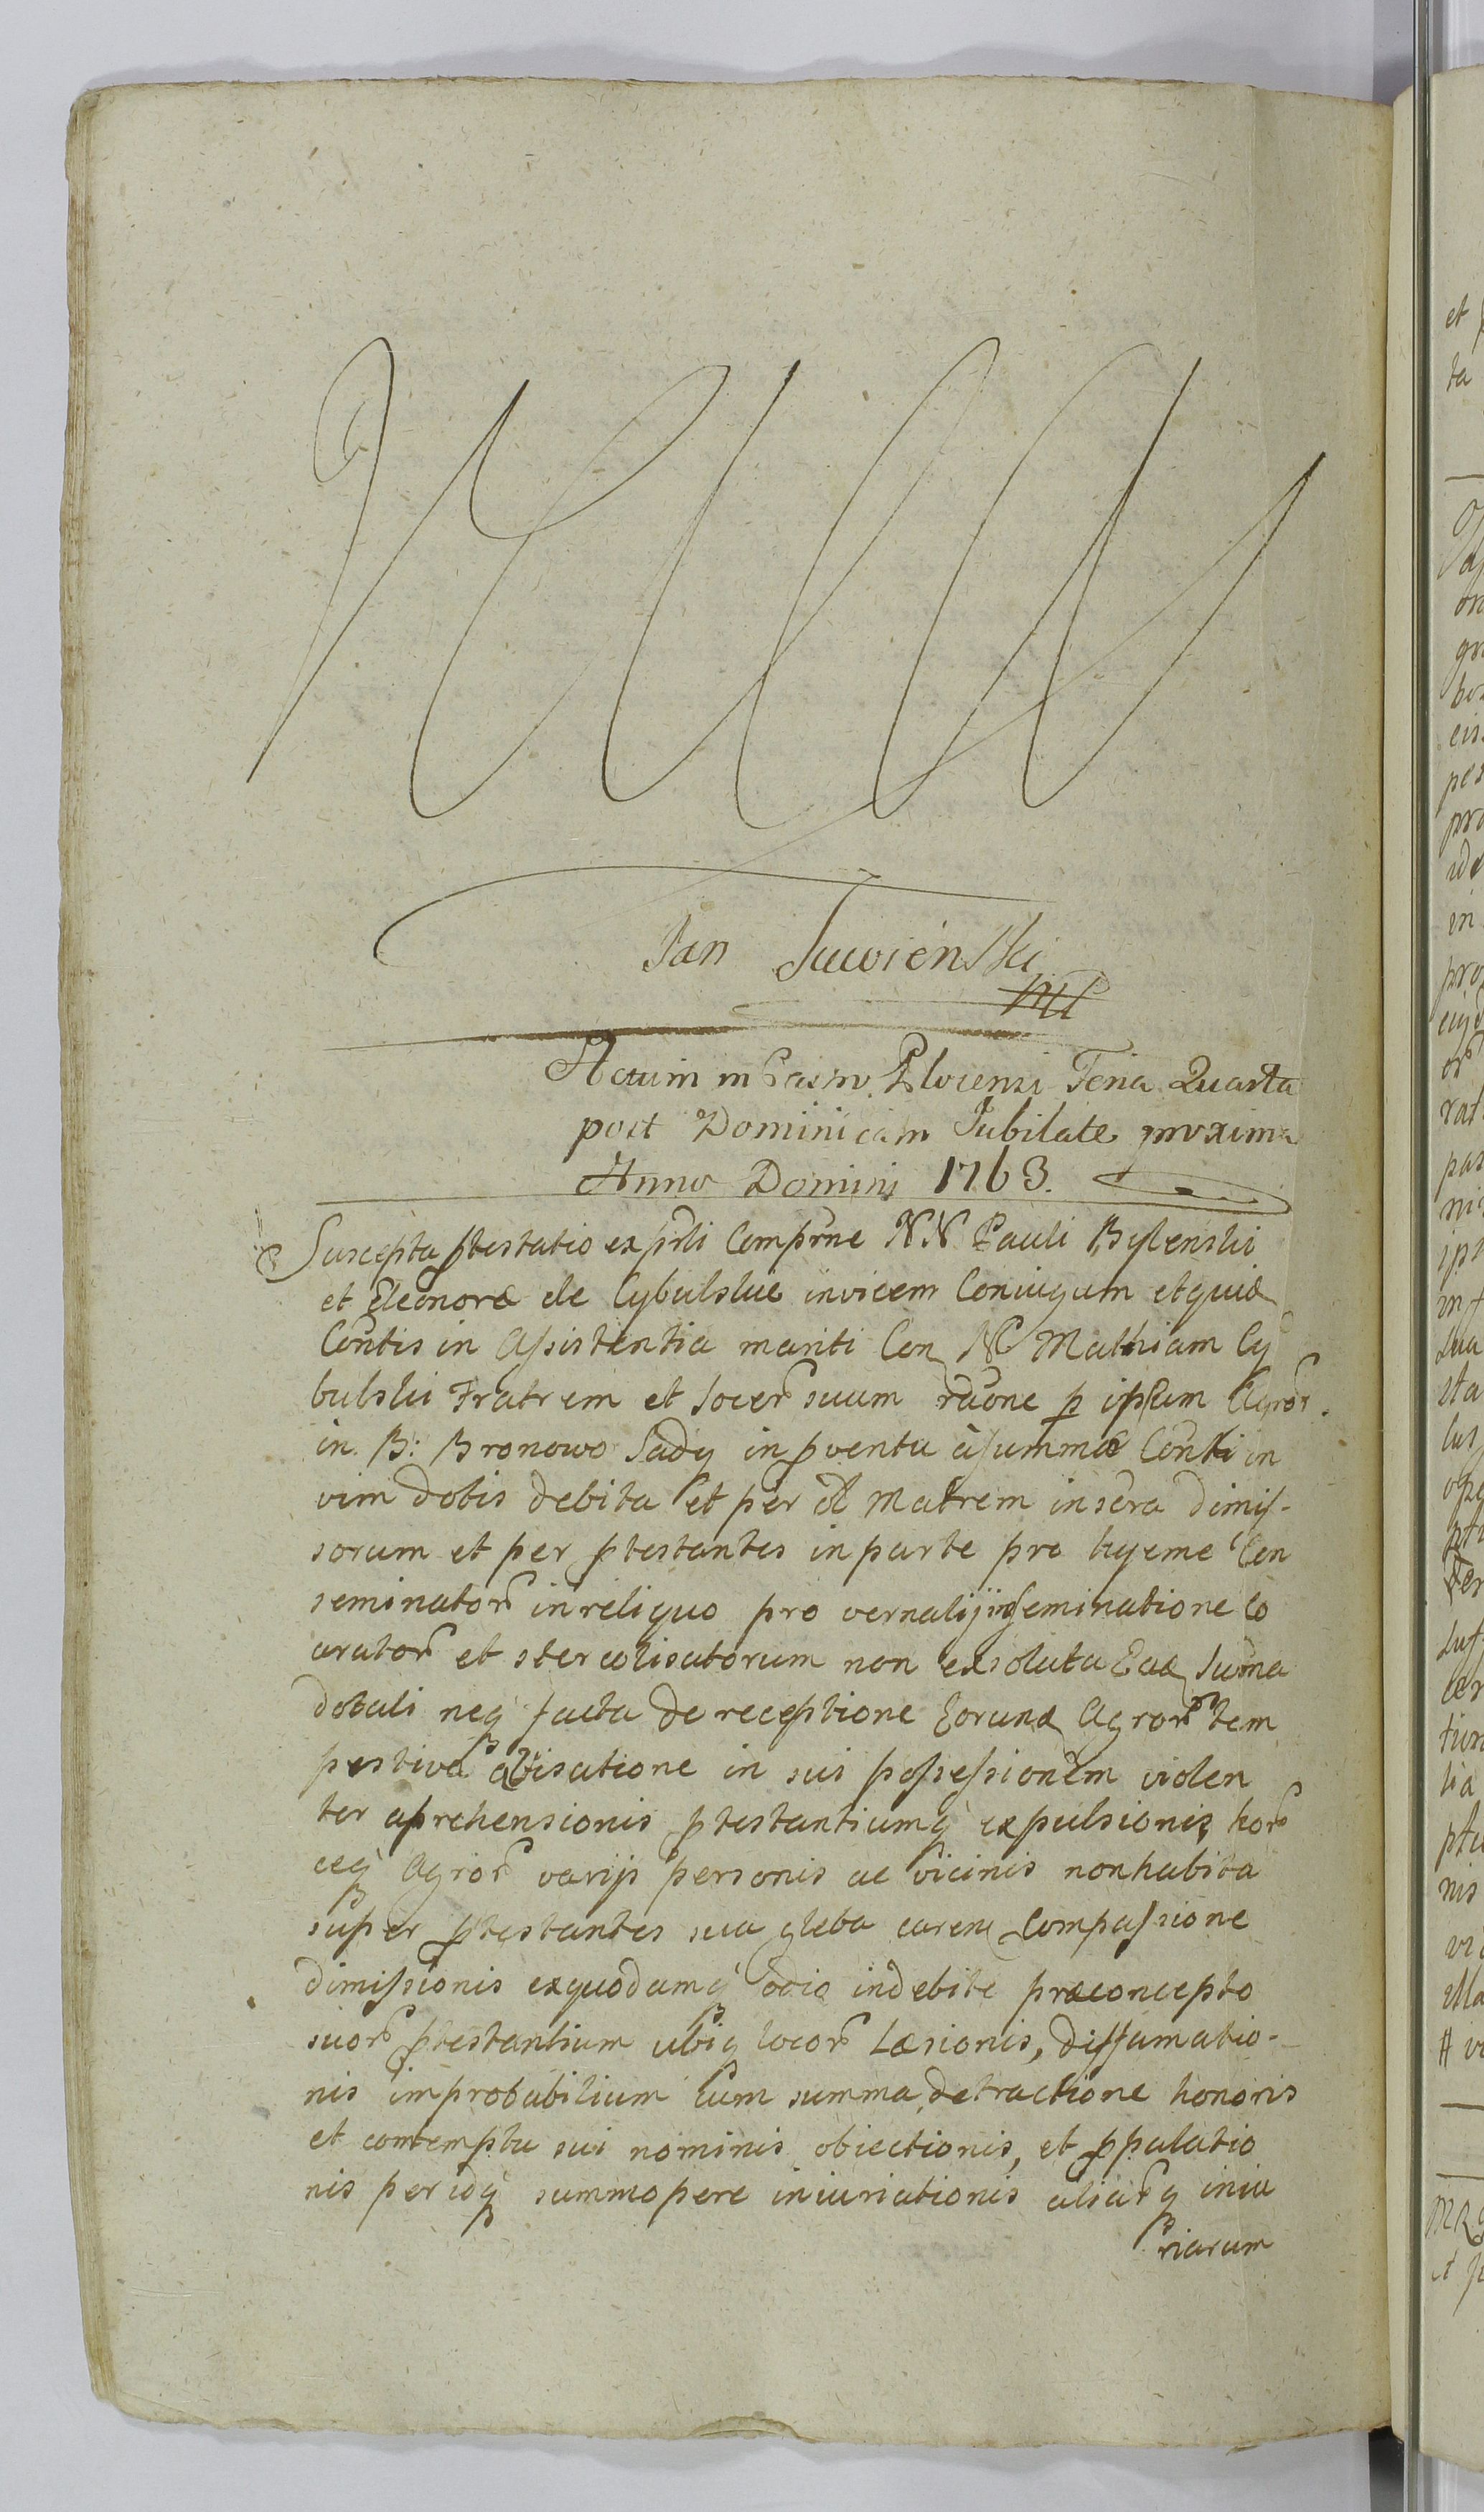 Jan Suwieński
mp
Actum in Castro Plocensi Feria Quarta
post Dominicam Jubilate proxima
Anno Domini 1763.
Suscepta ptestatio ex prti Comprne NN Pauli Bylenski
et Eleonoræ de Cybulskie invicem Coniugum et quidæ
Contis in Assistentia mariti Con N Mathiam Cy
bulski Fratrem et Socerũ suum raõne p ipsum Agror̃
in B: Bronowo Sady in pventu à summæ Conti in
vim dotis debita et per ol Matrem in sera dimis-
sorum et per ptestantes in parte pro hyeme Con
seminator̃ in reliquo pro vernali inseminatione Co
arator̃ et stercolisatorum non exsoluta Ead Suma
dotali neq facta de receptione Eorund Agrorũ tem
pestiva avisatione in sui possessionem violen
ter aprehensionis ptestantiumq expulsionis, hor̃
ceq Agror̃ varijs personis ac vicinis non habita
super ptestantes sua gleba caren Compassione
dimissionis ex quodamq odio indebite præconcepto
suor̃ ptestantium ubiq locor̃ Læsionis, diffamatio-
nis improbabilium cum summa detractione honoris
et contemptu sui nominis obiectionis, et ppalatio
nis per idq summopere iniuriationis aliar̃q iniu
riarum